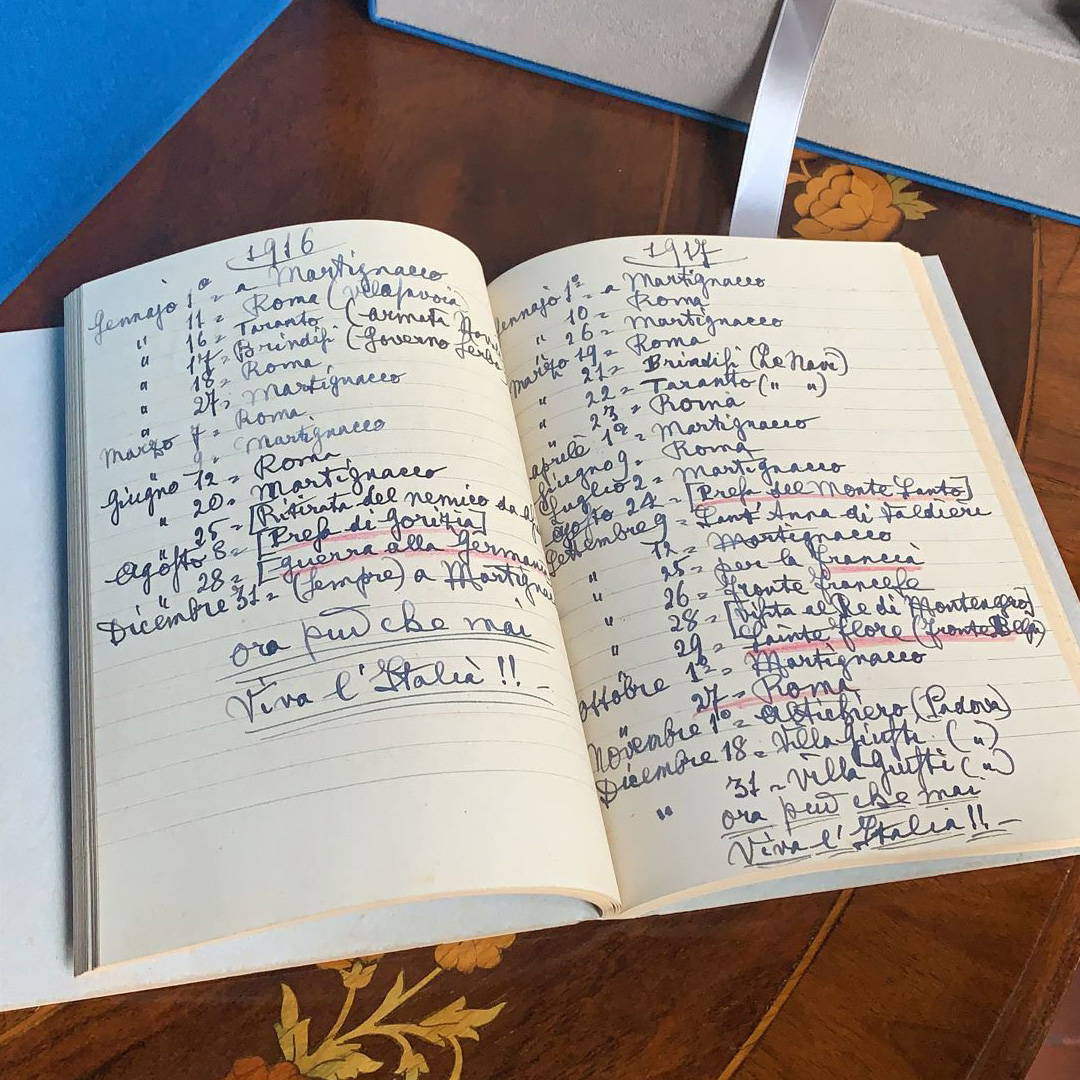 1916
Gennajo 1º = a Martignacco
" 11 = Roma (Villa Savoia)
" 16 = Taranto (armata
" 17 = Brindisi (Governo Serbo
" 18 = Roma
" 27 = Martignacco
Marzo 7 = Roma
" 9 = Martignacco
Giugno 12 = Roma
" 20 = Martignacco
" 25 = [Ritirata del nemico
Agosto 8 = [Presa di Gorizia]
" 28 = [guerra alla Germania
Dicembre 31 = (sempre) a Martignacco
ora più che mai
Viva l'Italia!!
1917
Gennajo 1º = a Martignacco
" 10 = Roma
" 26 = Martignacco
Marzo 19 = Roma
" 21 = Brindisi (Le Navi)
" 22 = Taranto (" ")
" 23 = Roma
aprile 1º = Martignacco
Giugno 9 = Roma
Luglio 2 = Martignacco
Agosto 24 = [Presa del Monte Santo]
Settembre 9 = Sant'Anna di Valdieri
" 12 = Martignacco
" 25 = per la Francia
" 26 = fronte francese
" 28 = [Visita al Re di Montenegro]
" 29 = Sainte flore (fronte Belga)
Ottobre 1º = Martignacco
" 27 = Roma
Novembre 1º = Altichiero (Padova)
Dicembre 18 = Villa Giusti (")
" 31 = Villa Giusti (")
ora più che mai
Viva l'Italia!!